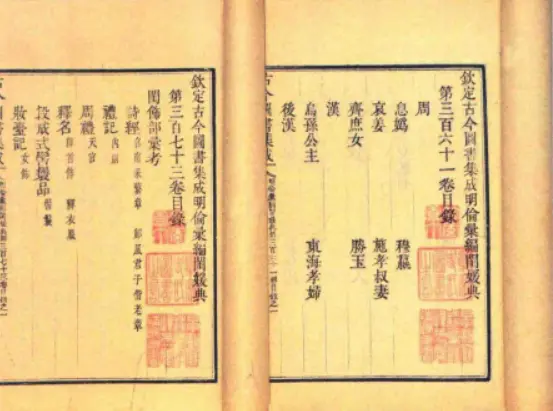 欽定古今圖書集成明倫彙編閨媛典
第三百六十一卷目錄
周
息嬀 穆嬴
哀姜 施孝叔妻
齊庶女 勝玉
漢
烏孫公主 東海孝婦
後漢
古今圖書集成
欽定古今圖書集成明倫彙編閨媛典
第三百七十三卷目錄
閨飾部彙考
詩經 召南采蘩章 鄘風君子偕老章
禮記 內則
周禮 天官
釋名 釋首飾 釋衣服
段成式髻鬟品 髻鬟
妝臺記 女飾
古今圖書集成